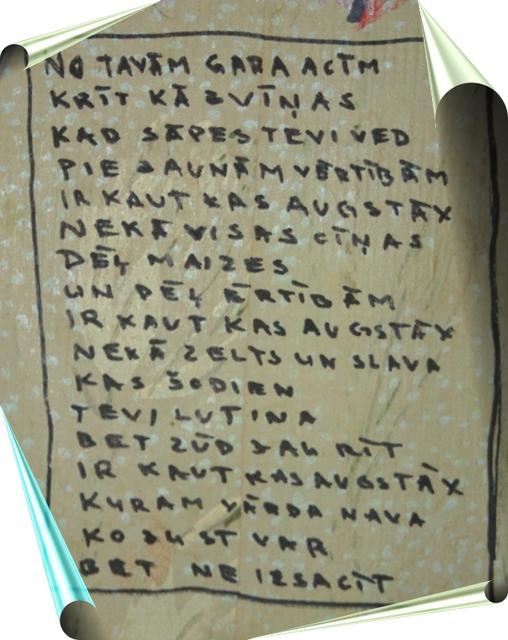 NO TAVĀM GARA ACĪM
KRĪT KĀ ZVĪŅAS
KAD SĀPES TEVI VED
PIE JAUNĀM VĒRTĪBĀM
IR KAUT KAS AUGSTĀX
NEKĀ VISAS CĪŅAS
DĒĻ MAIZES
UN DĒĻ ĒRTĪBĀM
IR KAUT KAS AUGSTĀX
NEKĀ ZELTS UN SLAVA
KAS ŠODIEN
TEVI LUTINA
BET ZŪD JAU RĪT
IR KAUT KAS AUGSTĀX
KURAM VĀRDA NAVA
KO JUST VAR
BET NE IZSACĪT